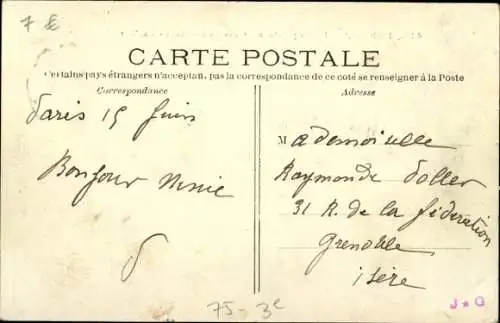 7 €
CARTE POSTALE
Certains pays étrangers n'acceptant pas la correspondance de ce coté se renseigner à la Poste
Correspondance
Adresse
Paris 15 Juin
Bonjour Ninie
Mademoiselle
Raymonde Doller
31 R. de la fédération
Grenoble
isère
75-3e
J★G